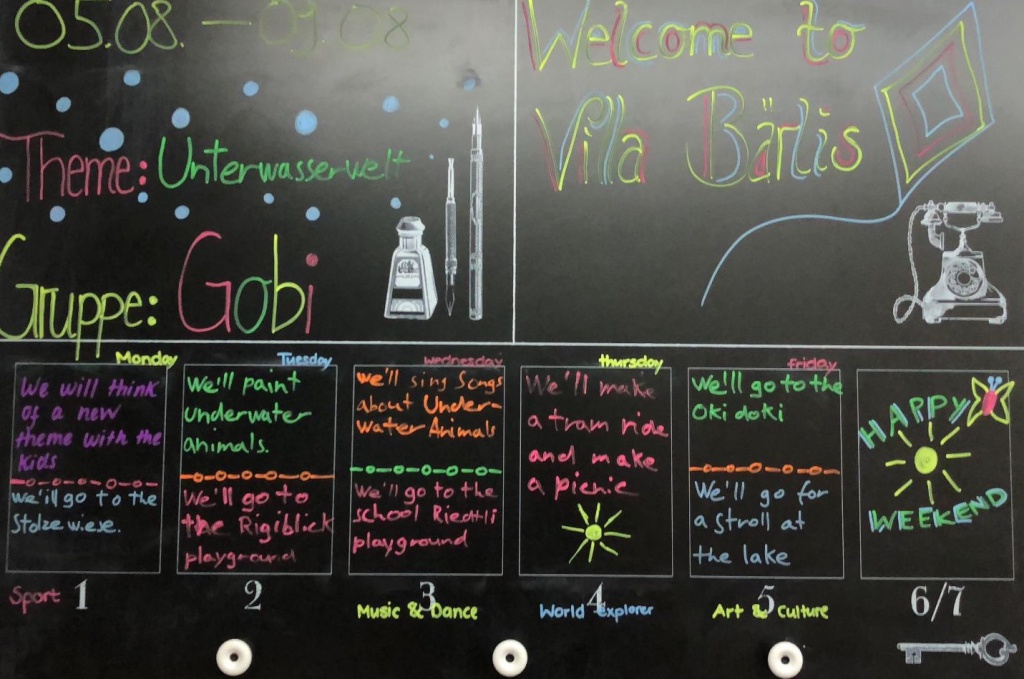 05.08. – 09.08
Theme: Unterwasserwelt
Gruppe: Gobi
Welcome to
Villa Bärlis
Monday
We will think
of a new
theme with the
kids
we'll go to the
Stolzewiese.
1
Sport
Tuesday
We'll paint
underwater
animals.
We'll go to
the Rigiblick
playground
2
wednesday
we'll sing Songs
about Under-
Water Animals
We'll go to the
school Riedtli
playground
3
Music & Dance
thursday
We'll make
a tram ride
and make
a picnic
4
World Explorer
friday
We'll go to the
Oki doki
We'll go for
a stroll at
the lake
5
Art & Culture
HAPPY
WEEKEND
6/7